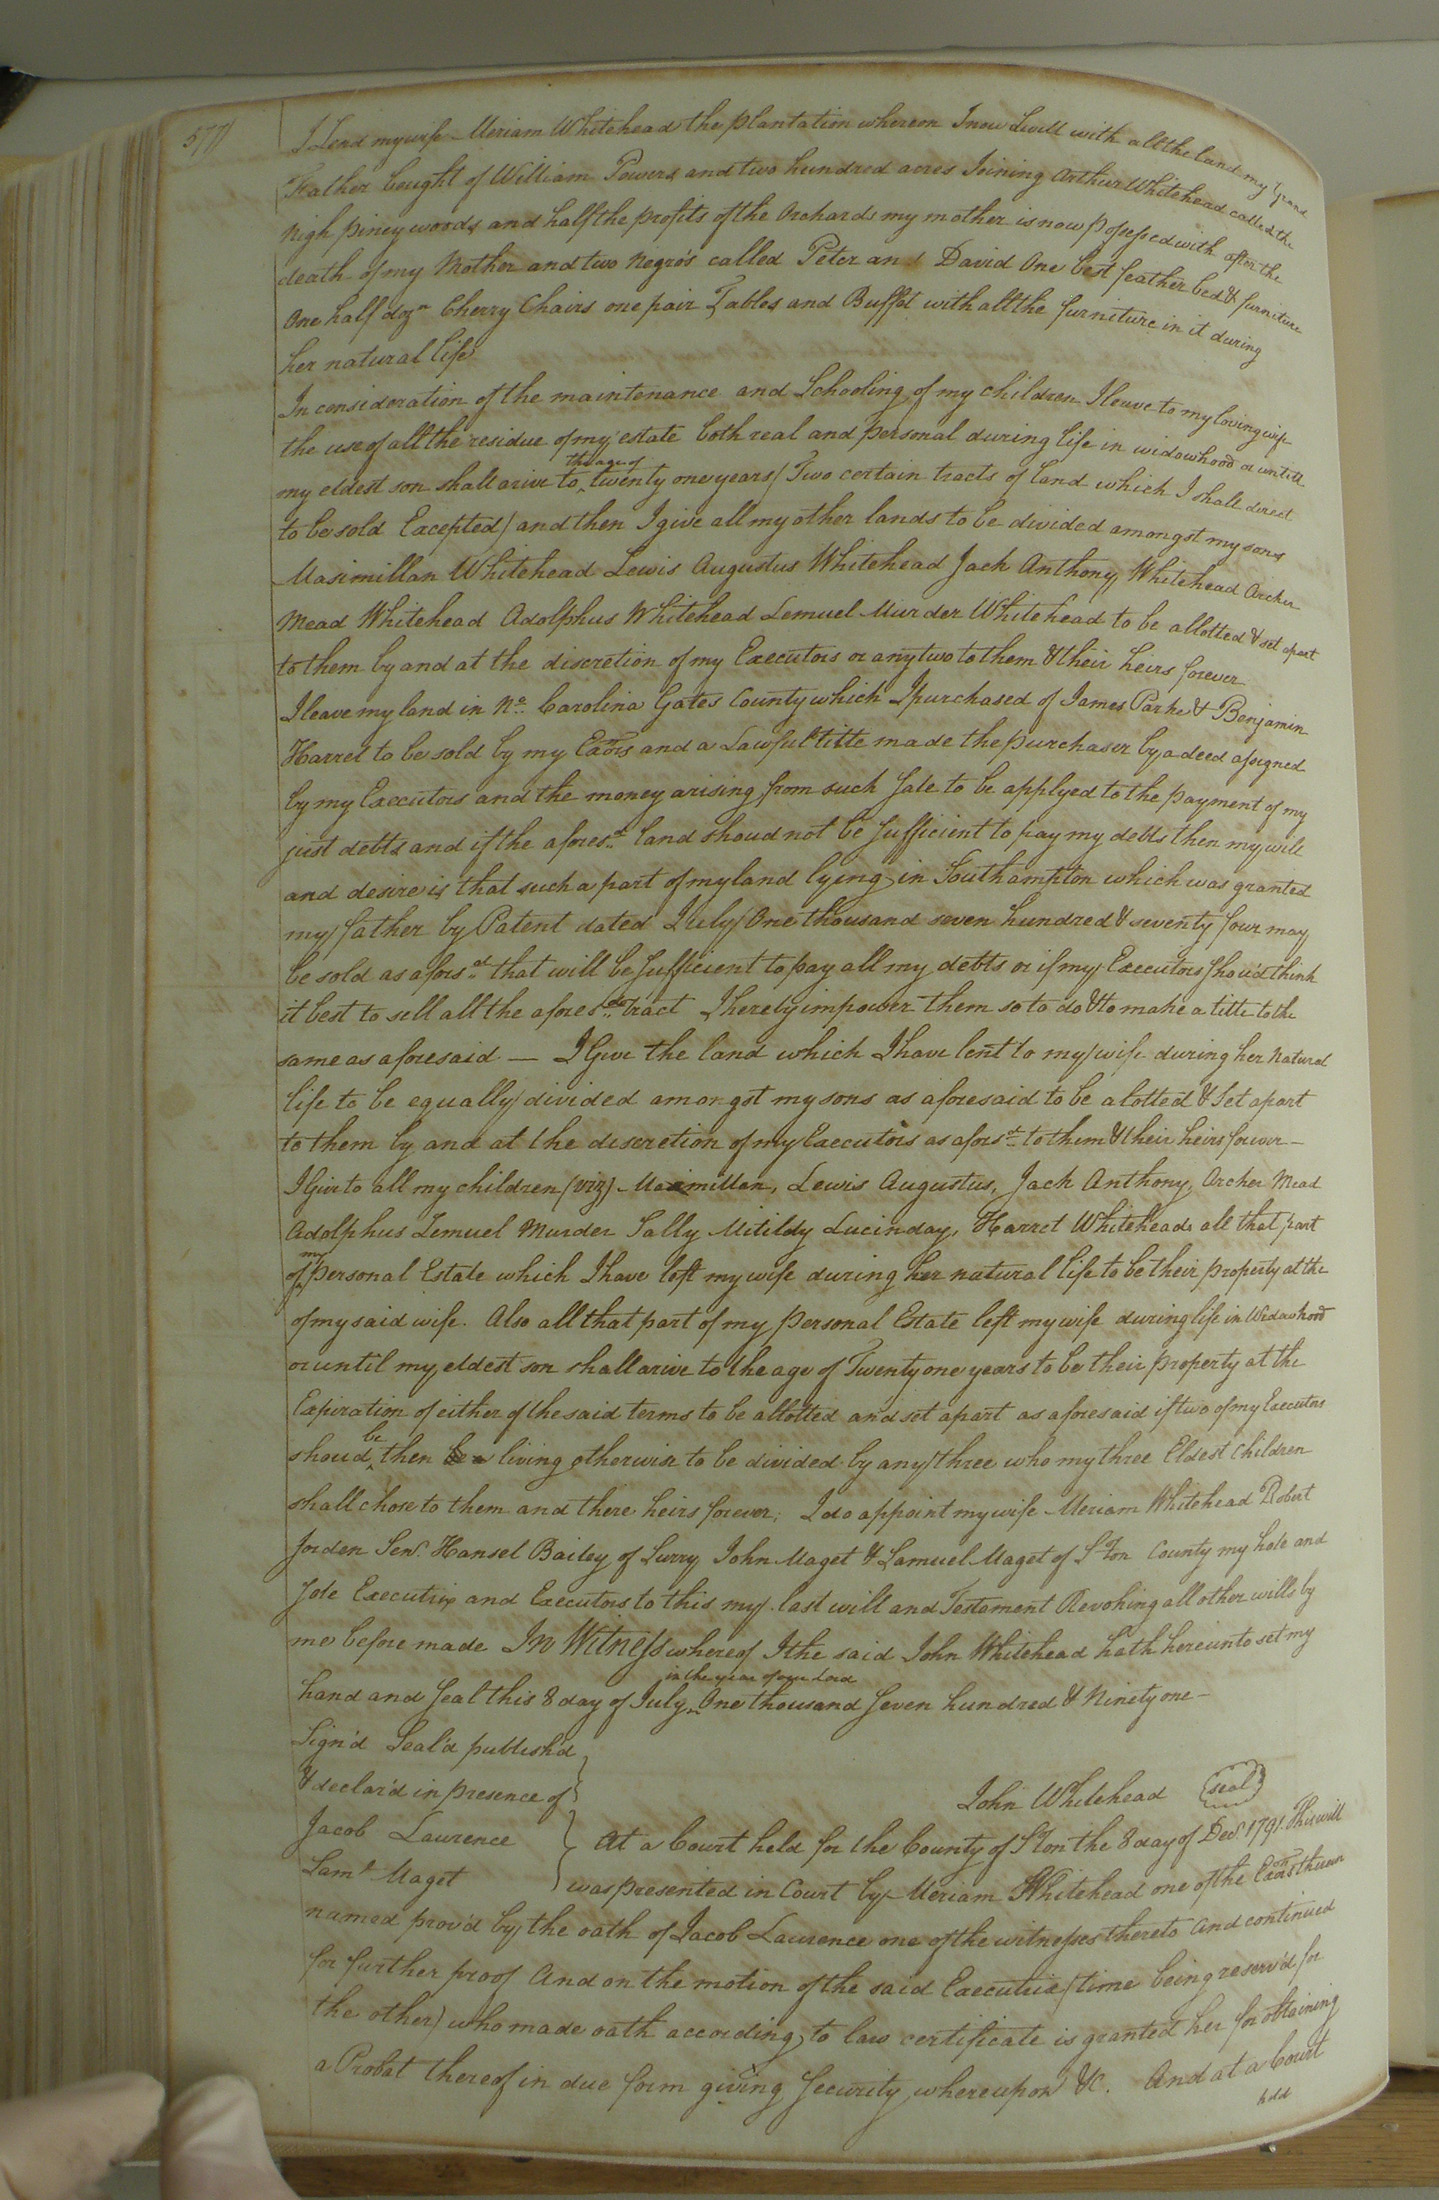 577)
I Lend my wife Meriam Whitehead the plantation whereon I now dwell with all the land my Grand
Father bought of William Powers and two hundred acres Joining Arthur Whitehead called the
high piney woods and half the profits of the Orchards my mother is now possessed with after the
death of my Mother and two Negro's called Peter and David One best feather bed & furniture
One half dozn Cherry Chairs one pair Tables and Buffet with all the furniture in it during
her natural life
In consideration of the maintenance and Schooling of my children I leave to my loving wife
the use of all the residue of my estate both real and personal during life in widowhood or untill
my eldest son shall arive to the age of twenty one years/ Two certain tracts of land which I shall direct
to be sold Excepted/ and then I give all my other lands to be divided amongst my sons
Maximillan Whitehead Lewis Augustus Whitehead Jack Anthony Whitehead Archer
Mead Whitehead Adolphus Whitehead Lemuel Murder Whitehead to be allotted & set apart
to them by and at the discretion of my Executors or any two to them & their heirs forever
I leave my land in No. Carolina Gates County which I purchased of James Parke & Benjamin
Harrel to be sold by my Exors and a Lawful title made the purchaser by a deed assigned
by my Executors and the money arising from such Sale to be applyed to the payment of my
just debts and if the aforesd. land shoud not be Sufficient to pay my debts then my will
and desire is that such a part of my land lying in Southampton which was granted
my father by Patent dated July One thousand seven hundred & seventy four may
be sold as aforsd. that will be Sufficient to pay all my debts or if my Executors shoud think
it best to sell all the aforesd. tract I hereby impower them so to do & to make a title to the
same as aforesaid — I Give the land which I have lent to my wife during her Natural
life to be equally divided amongst my sons as aforesaid to be alotted & Set apart
to them by and at the discretion of my Executors as aforsd. to them & their heirs forever —
I Give to all my children (viz) Maximillan, Lewis Augustus, Jack Anthony, Archer Mead
Adolphus Lemuel Murder Sally Mitildy Lucinday, Harret Whiteheads all that part
of my personal Estate which I have left my wife during her natural life to be their property at the
of my said wife. Also all that part of my personal Estate left my wife during life in Widowhood
or until my eldest son shall arive to the age of Twenty one years to be their property at the
Expiration of either of the said terms to be allotted and set apart as aforesaid if two of my Executors
shoud be then living otherwise to be divided by any three who my three Eldest Children
shall chose to them and there heirs forever; I do appoint my wife Meriam Whitehead Robert
Jorden Senr. Hansel Bailey of Surry John Maget & Samuel Maget of S'ton County my hole and
Sole Executrix and Executors to this my last will and Testament Revoking all other wills by
me before made In Witness whereof I the said John Whitehead hath hereunto set my
hand and Seal this 8 day of July in the year of our Lord One thousand Seven hundred & Ninety one —
Sign'd Seal'd publish'd
& declar'd in presence of
John Whitehead (seal)
Jacob Laurence
Saml Maget
At a Court held for the County of S'ton the 8 day of Decr. 1791. This will
was presented in Court by Meriam Whitehead one of the Exors therein
named prov'd by the oath of Jacob Laurence one of the witnesses thereto And continued
for further proof And on the motion of the said Executrix (time being reserv'd for
the other) who made oath according to law certificate is granted her for obtaining
a Probat thereof in due form giving Security whereupon &c. And at a Court
held